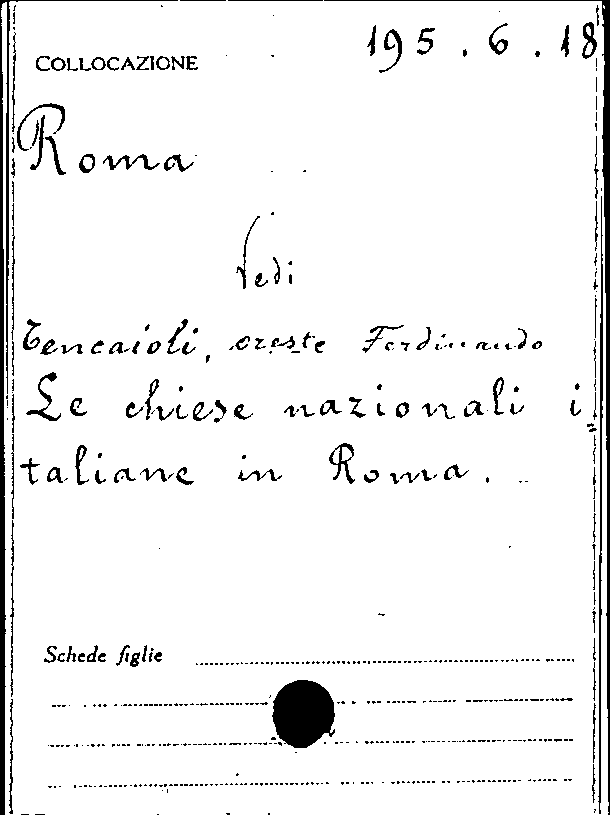 COLLOCAZIONE 195.6.18
Roma
Vedi
Tencaioli, oreste Ferdinando
Le chiese nazionali i=
taliane in Roma.
Schede figlie